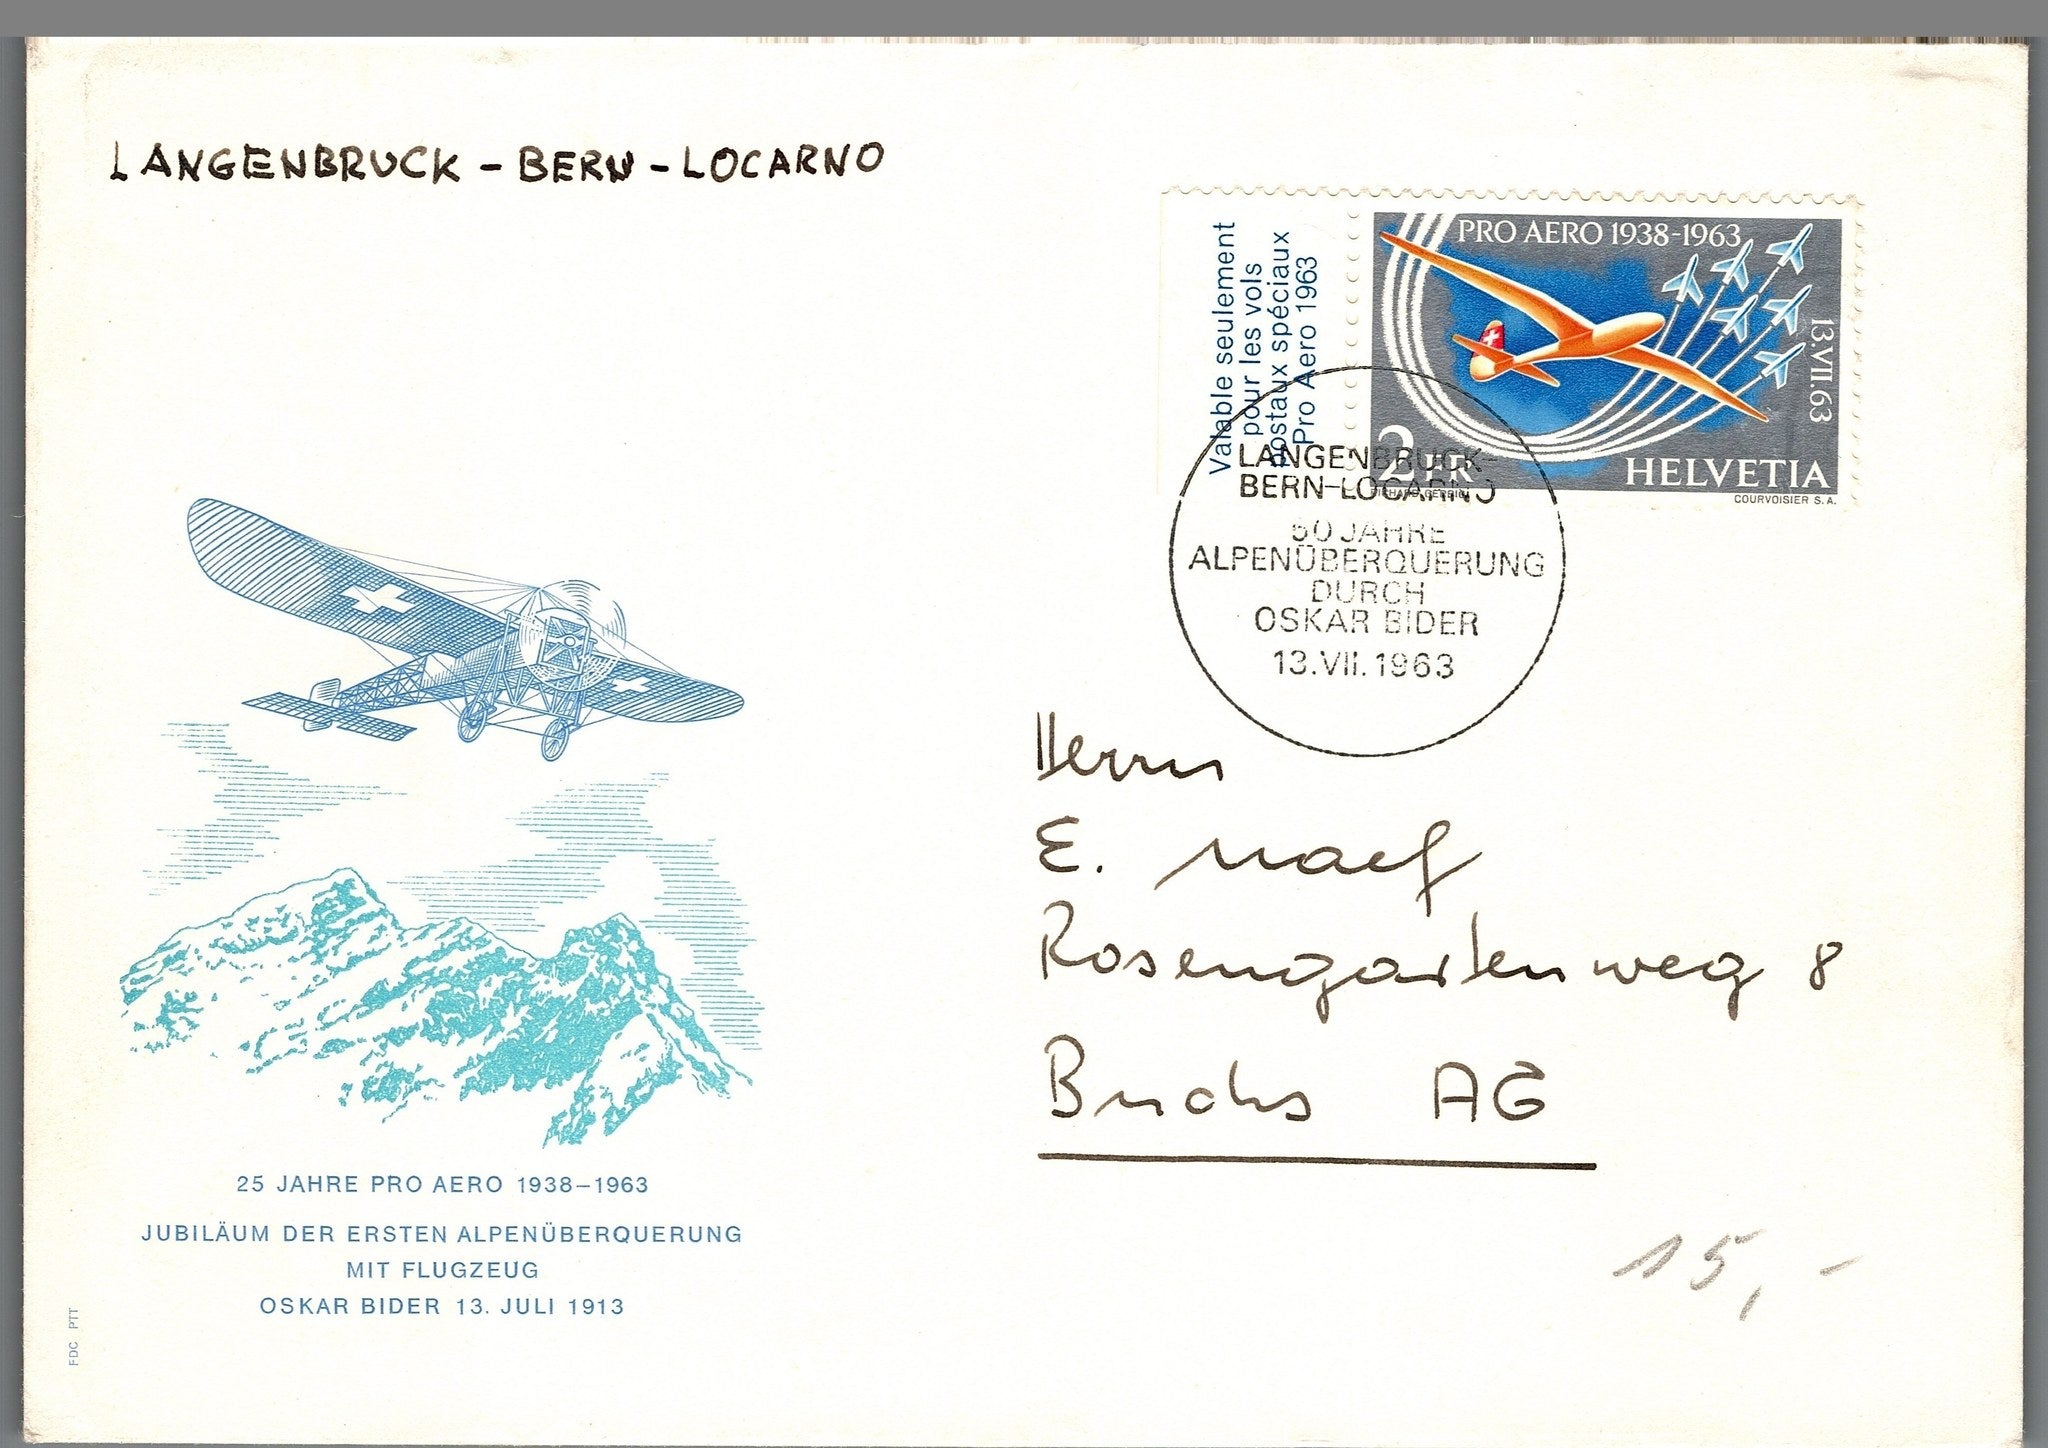 LANGENBRUCK - BERN - LOCARNO
Valable seulement
pour les vols
postaux spéciaux
Pro Aero 1963
PRO AERO 1938-1963
13.VII.63
2 FR
HELVETIA
COURVOISIER S.A.
LANGENBRUCK-
BERN-LOCARNO
50 JAHRE
ALPENÜBERQUERUNG
DURCH
OSKAR BIDER
13.VII.1963
Herrn
E. Naef
Rosengartenweg 8
Buchs AG
15,-
25 JAHRE PRO AERO 1938–1963
JUBILÄUM DER ERSTEN ALPENÜBERQUERUNG
MIT FLUGZEUG
OSKAR BIDER 13. JULI 1913
FDC PTT